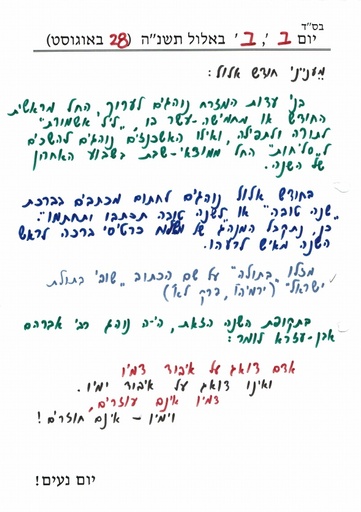 בס"ד
יום ב', ב' באלול תשנ"ה (28 באוגוסט)
מענייני חודש אלול:
בני עדות המזרח נוהגים לערוך, החל מראשית
החודש או מחמישה-עשר בו, "ליל אשמורת"
לתורה ולתפילה, ואילו האשכנזים נוהגים להשכים
ל"סליחות" החל ממוצאי-שבת בשבוע האחרון
של השנה.
בחודש אלול נוהגים לחתום מכתבים בברכת
"שנה טובה" או "לשנה טובה תכתבו ותחתמו".
כן, נתקבל המנהג של משלוח כרטיסי ברכה לראש
השנה מאיש לרעהו.
מזלו "בתולה" על שם הכתוב "שובי בתולת
ישראל" (ירמיהו, פרק לא')
בתקופת השנה הזאת, היה נוהג רבי אברהם
אבן-עזרא לומר:
אדם דואג על איבוד דמיו
ואינו דואג על איבוד ימיו.
דמיו אינם עוזרים,
וימיו – אינם חוזרים!
יום נעים!